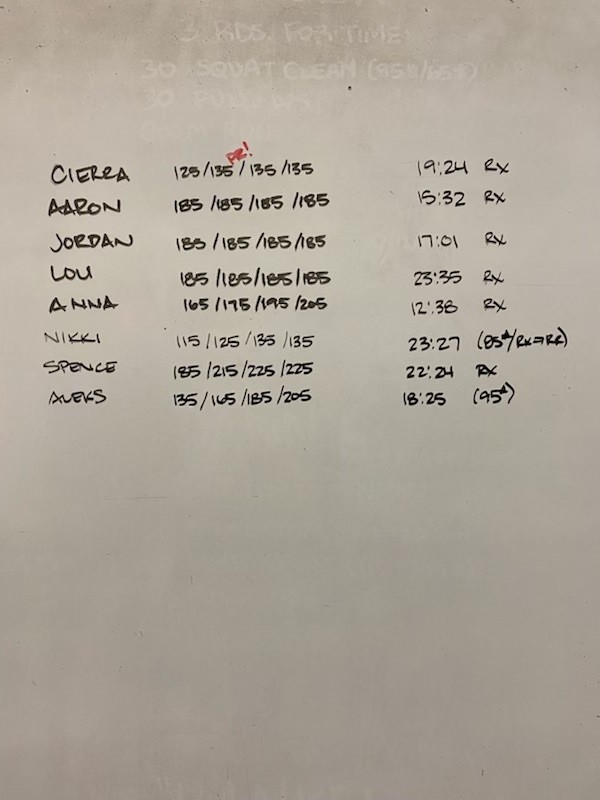 3 RDS. FOR TIME
30 SQUAT CLEAN (95#/65#)
30 PULL UPS
PR!
CIERRA 125/135/135/135 19:24 RX
AARON 185/185/185/185 15:32 RX
JORDAN 185/185/185/185 17:01 RX
LOU 185/185/185/185 23:35 RX
ANNA 165/175/195/205 12:38 RX
NIKKI 115/125/135/135 23:27 (85#/RX=RR)
SPENCE 185/215/225/225 22:24 RX
ALEKS 135/165/185/205 18:25 (95#)